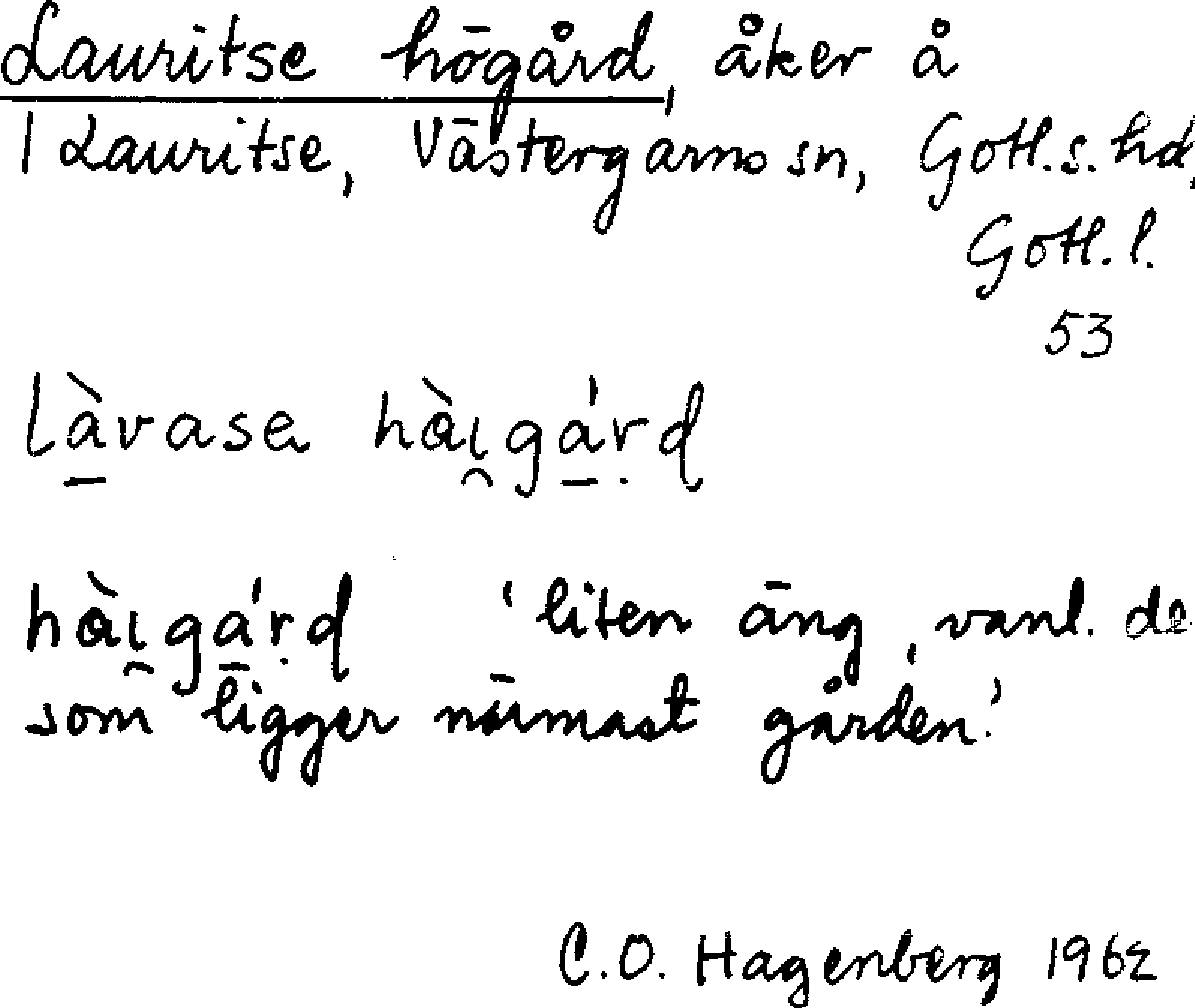 Lauritse högård, åker å
1 Lauritse, Västergarns sn, Gotl. s. hd,
Gotl. l.
53
làvasa hàı̯gárd
hàı̯gárd 'liten äng, vanl. de
som ligger närmast gården.'
C.O. Hagenberg 1962